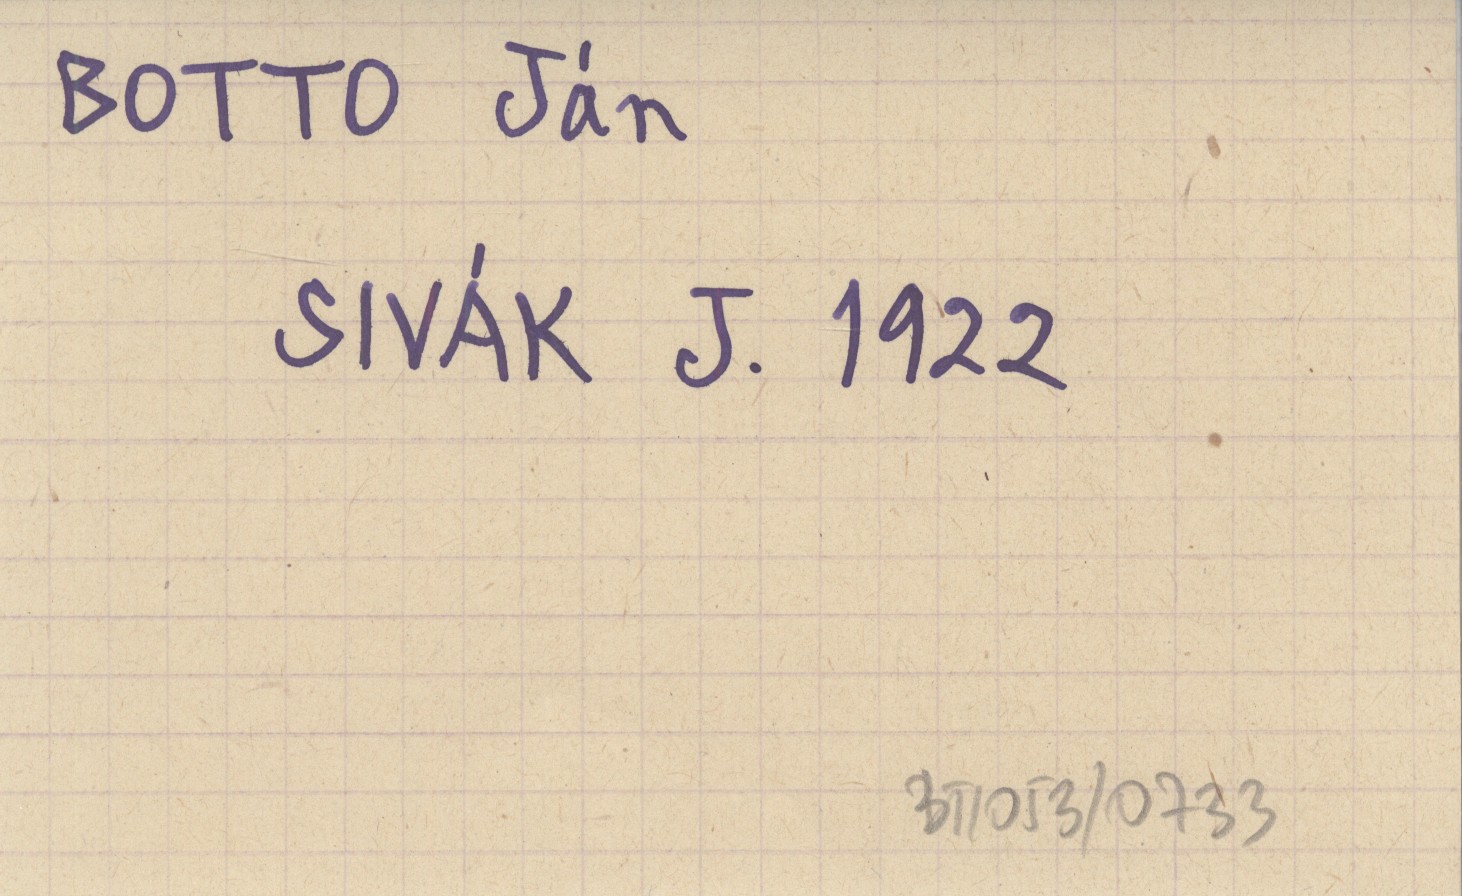 BOTTO Ján
SIVÁK J. 1922
BT/053/0733